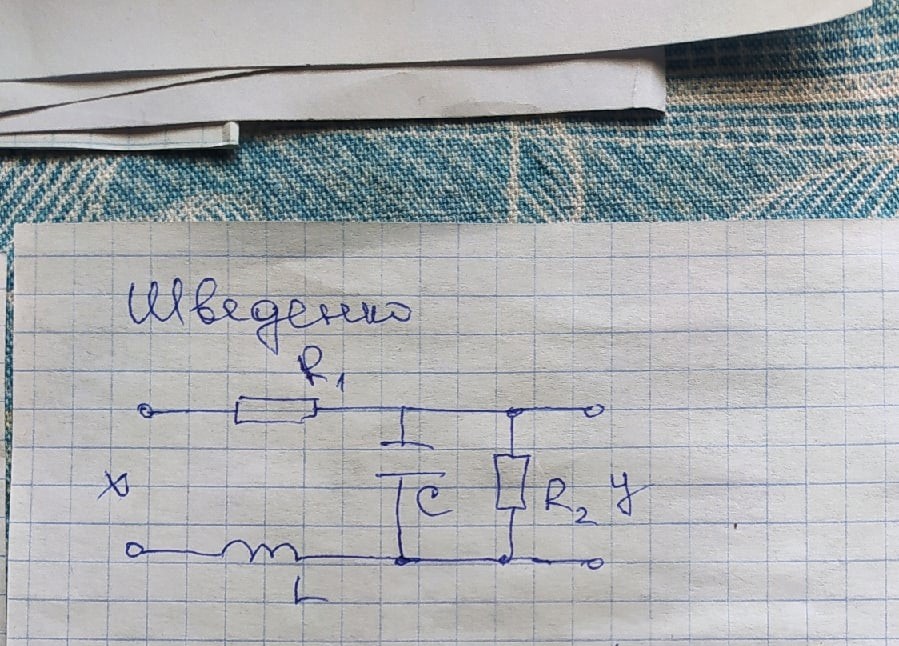 Шведенко
R1
X
C
R2 y
L